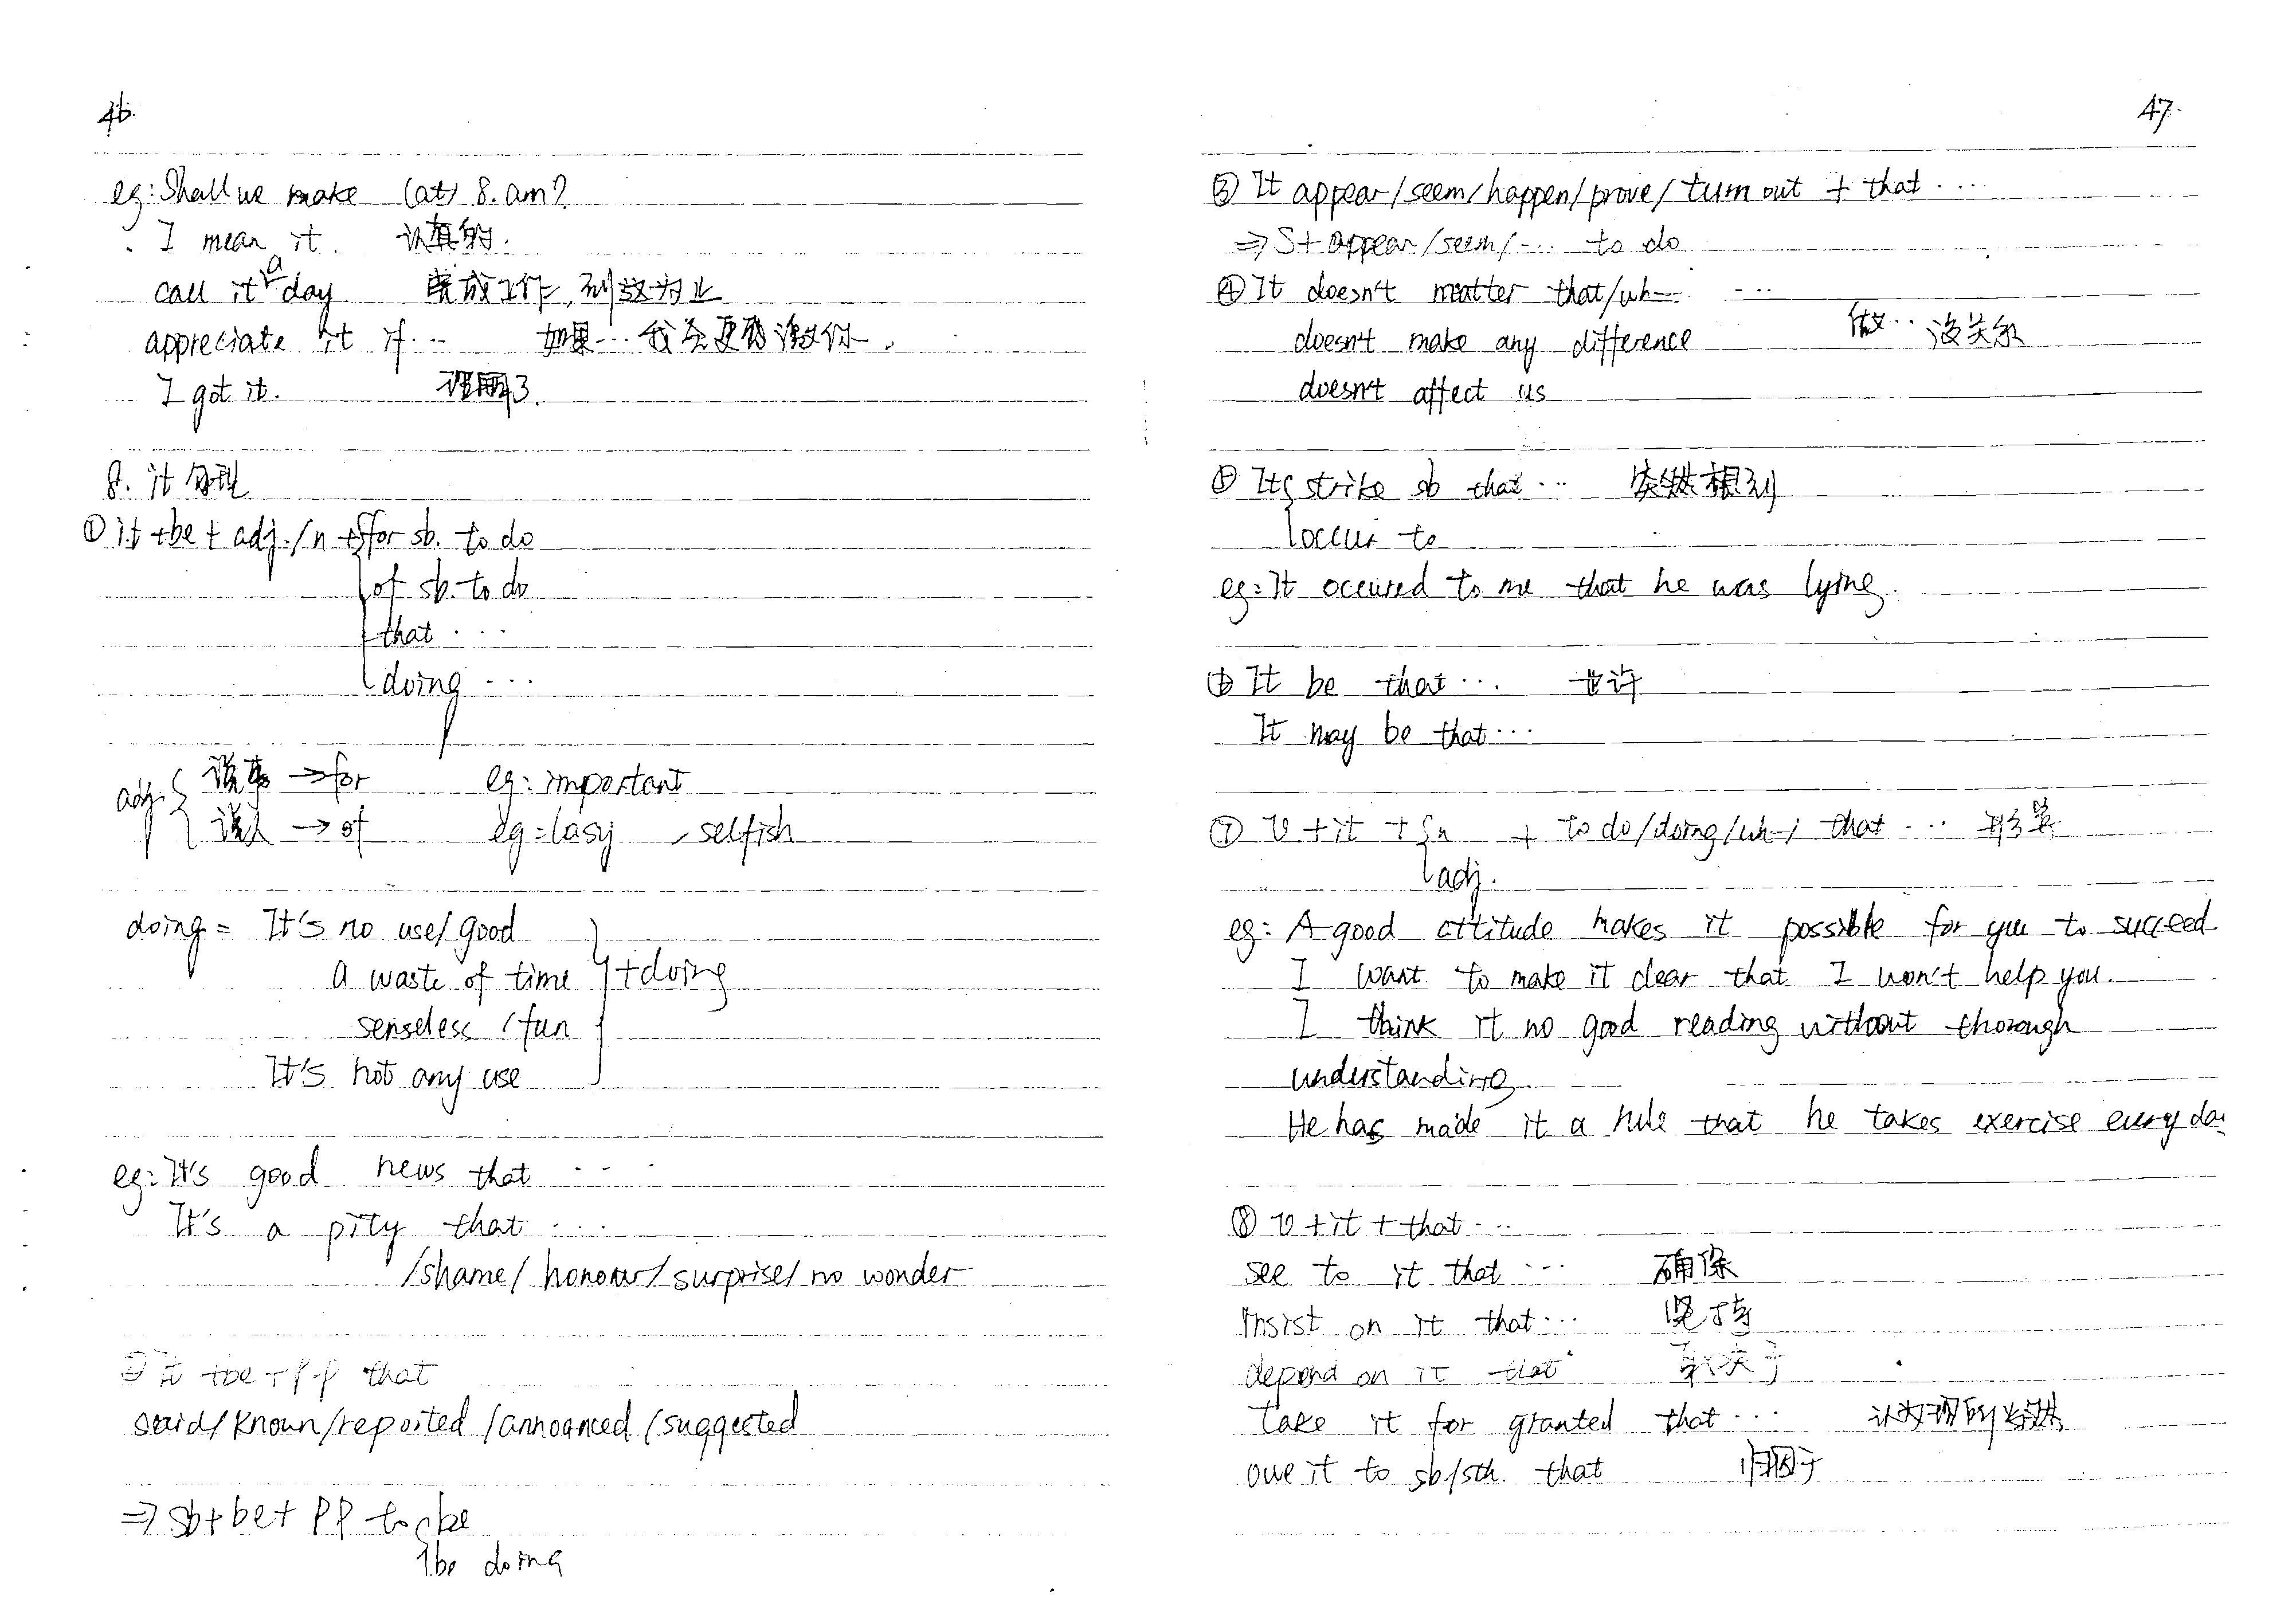 46.
eg: Shall we make (at) 8. am?
I mean it. 认真的.
call it a day 完成工作,到这为止
appreciate it if... 如果...我会更感谢你.
I got it. 理解了.
8. it 句型
① it +be + adj./n + for sb. to do
of sb. to do
that ...
doing ...
adj. 说事 → for eg: important
说人 → of eg: lasy / selfish
doing = It's no use/good
a waste of time +doing
senseless / fun
It's not any use
eg: It's good news that ...
It's a pity that ...
/shame/ honour/ surprise/ no wonder
② it +be + PP that
said/known/reported/announced/suggested
⇒ sb+be+ PP to be
be doing
47.
③ It appear/seem/happen/prove/turn out + that ...
⇒ S+ appear/seem/... to do
④ It doesn't matter that/wh- ...
doesn't make any difference 做...没关系
doesn't affect us
⑤ It strike sb that ... 突然想到
occur to
eg: It occured to me that he was lying.
⑥ It be that ... 也许
It may be that ...
⑦ v + it + n + to do/doing/wh-/ that ... 形宾
adj.
eg: A good attitude makes it possible for you to succeed
I want to make it clear that I won't help you.
I think it no good reading without thorough
understanding
He has made it a rule that he takes exercise every da
⑧ v + it + that ...
see to it that ... 确保
insist on it that ... 坚持
depend on it that 取决于
take it for granted that ... 认为理所当然
owe it to sb/sth. that 归因于